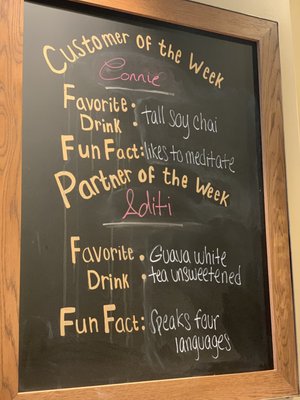 Customer of the Week
Connie
Favorite Drink: tall soy chai
Fun Fact: likes to meditate
Partner of the Week
Aditi
Favorite : Guava white
Drink : tea unsweetened
Fun Fact: Speaks four
languages